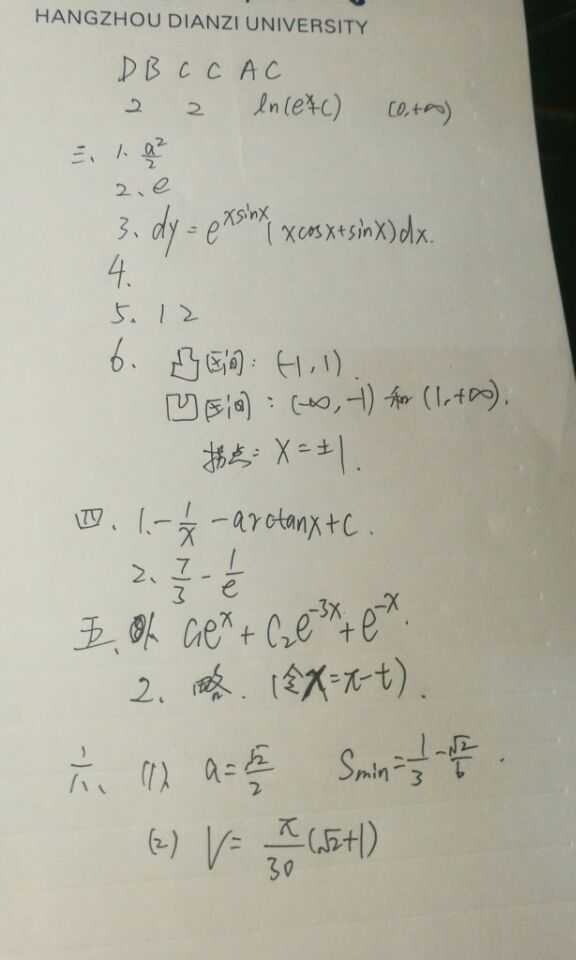 HANGZHOU DIANZI UNIVERSITY
D B C C A C
2 2 ln(eˣ+C) (0,+∞)
三、1、a²/2
2、e
3、dy=e^(xsinx)(xcosx+sinx)dx.
4.
5、1 2
6、凸区间：(-1,1).
凹区间：(-∞,-1)和(1,+∞).
拐点：X=±1.
四、1.-1/x-arctanx+C.
2、7/3-1/e
五、 C₁eˣ+C₂e^(-3x)+e^(-x).
2、略.(令x=π-t).
六、(1) a=√2/2 Smin=1/3-√2/6.
(2) V=π/30(√2+1)